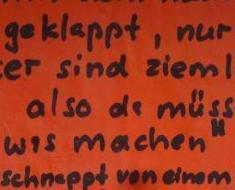 geklappt, nur
er sind zieml
also da müss
was machen"
schnappt von einem